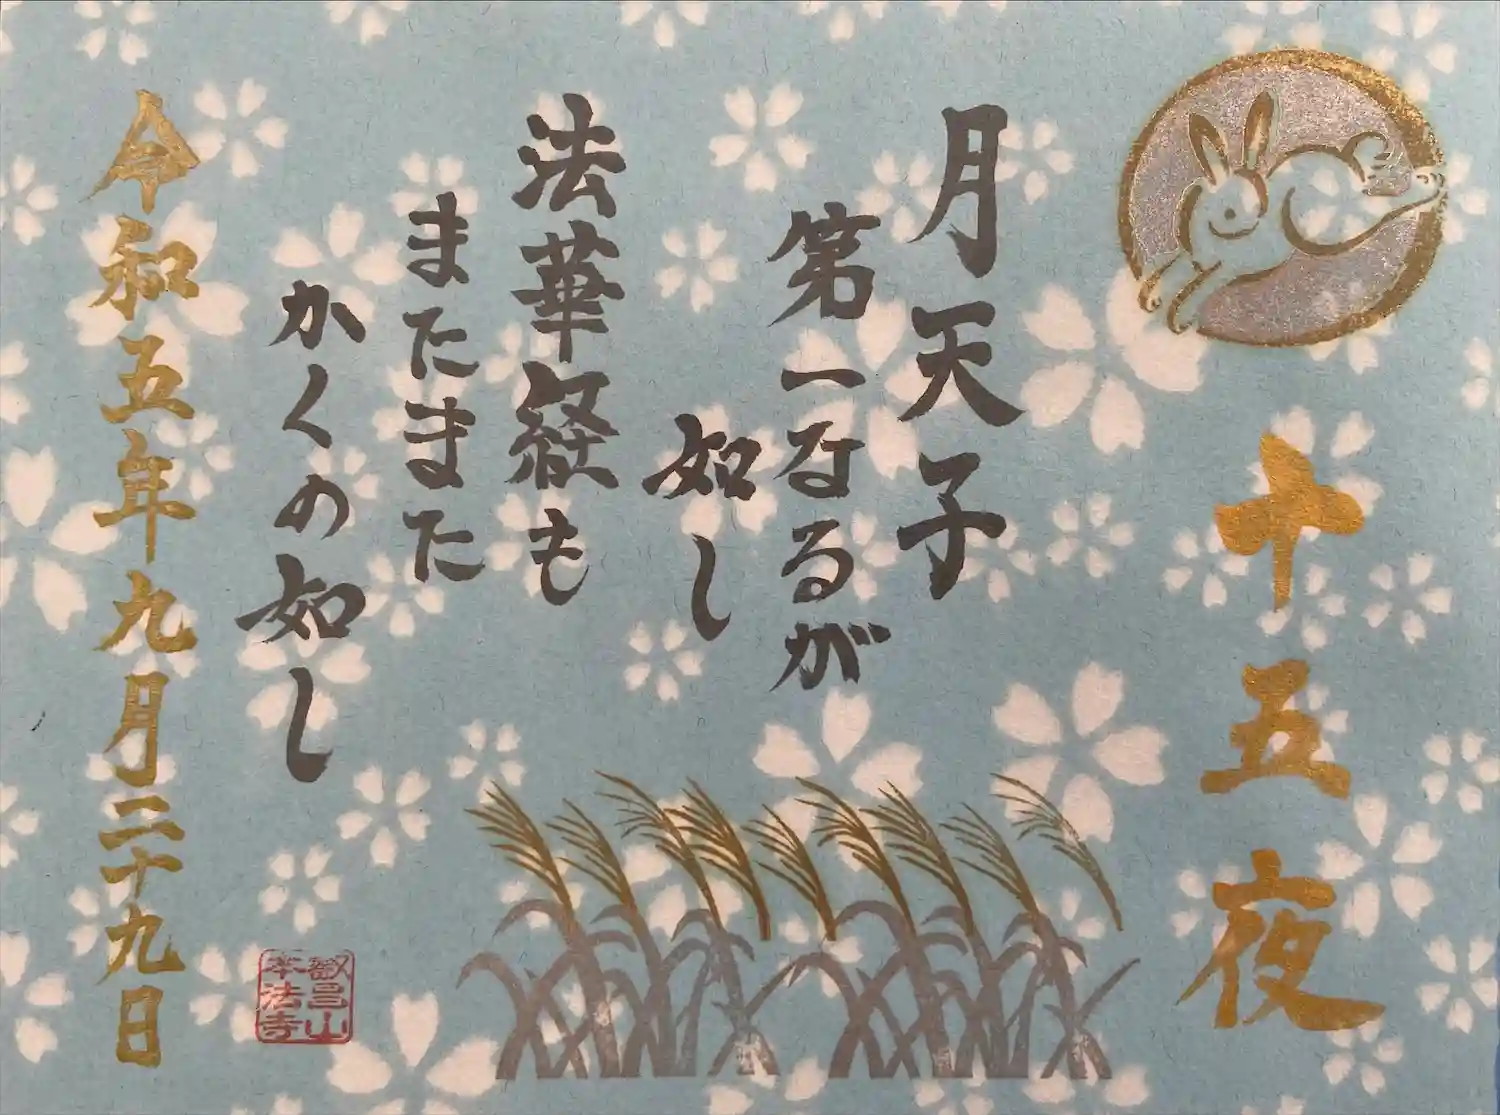 十五夜
月天子
第一なるが
如し
法華経も
またまた
かくの如し
令和五年九月二十九日
叡昌山
本法寺